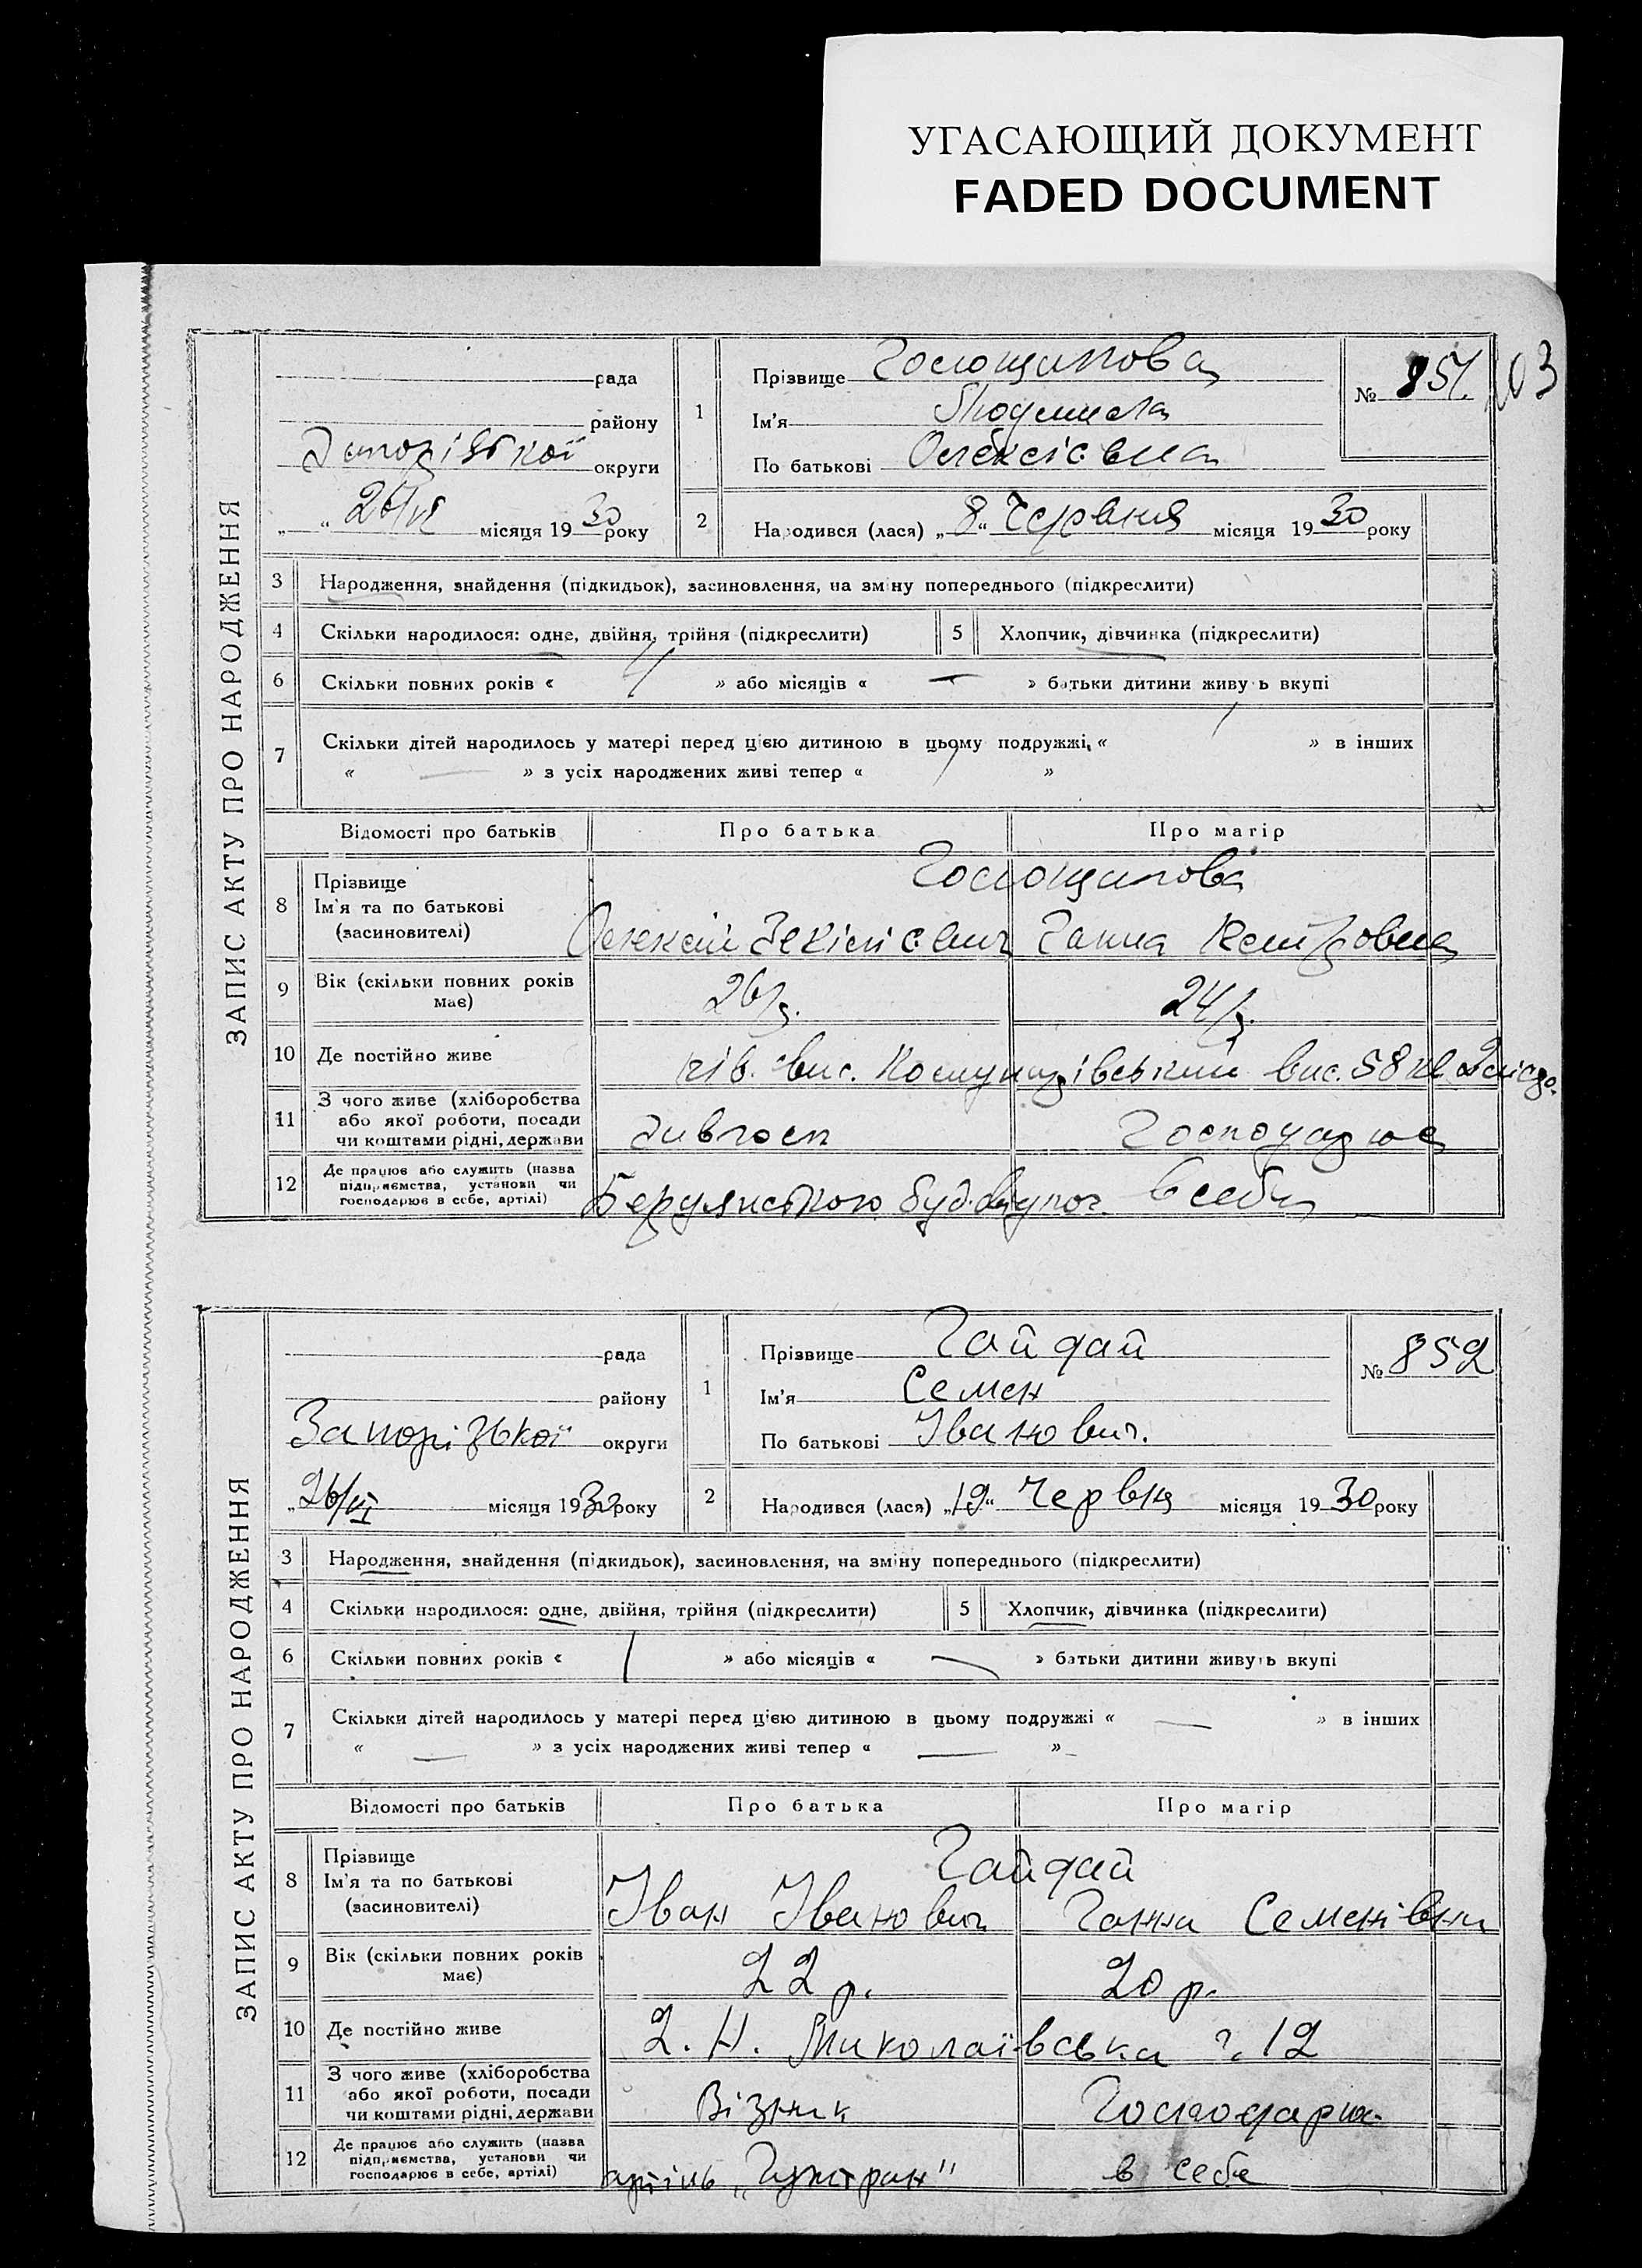 УГАСАЮЩИЙ ДОКУМЕНТ
FADED DOCUMENT
ЗАПИС АКТУ ПРО НАРОДЖЕННЯ
рада
району
округи
„ “ 26/VI місяця 1930 року
1 Прізвище
Ім'я Людмила
По батькові Олексієвна
№ 851. 103
2 Народився (лася) „8“ Червня місяця 1930 року
3 Народження, знайдення (підкидьок), засиновлення, на зміну попереднього (підкреслити)
4 Скільки народилося: одне, двійня, трійня (підкреслити) 5 Хлопчик, дівчинка (підкреслити)
6 Скільки повних років « » або місяців « — » батьки дитини живуть вкупі
7 Скільки дітей народилось у матері перед цією дитиною в цьому подружжі, « 1 » в інших
« — » з усіх народжених живі тепер « 1 »
Відомості про батьків Про батька Про матір
8 Прізвище
Ім'я та по батькові
(засиновителі)
Олексій Ганна
9 Вік (скільки повних років має) 26 р. 24 р.
10 Де постійно живе вис. 58
11 З чого живе (хліборобства
або якої роботи, посади
чи коштами рідні, держави
12 Де працює або служить (назва
підприємства, установи чи
господарює в себе, артілі)
в себе
ЗАПИС АКТУ ПРО НАРОДЖЕННЯ
рада
району
Запорізької округи
„26/VI місяця 1930 року
1 Прізвище Гайдай
Ім'я Семен
По батькові Іванович.
№ 852
2 Народився (лася) „19“ Червня місяця 1930 року
3 Народження, знайдення (підкидьок), засиновлення, на зміну попереднього (підкреслити)
4 Скільки народилося: одне, двійня, трійня (підкреслити) 5 Хлопчик, дівчинка (підкреслити)
6 Скільки повних років « 1 » або місяців « — » батьки дитини живуть вкупі
7 Скільки дітей народилось у матері перед цією дитиною в цьому подружжі « — » в інших
« — » з усіх народжених живі тепер « — »
Відомості про батьків Про батька Про матір
8 Прізвище
Ім'я та по батькові
(засиновителі)
Гайдай
Іван Іванович Ганна Семенівна
9 Вік (скільки повних років має) 22 р. 20 р.
10 Де постійно живе Миколаївська 12
11 З чого живе (хліборобства
або якої роботи, посади
чи коштами рідні, держави
Візник
12 Де працює або служить (назва
підприємства, установи чи
господарює в себе, артілі)
артіль „Гужтран" в себе